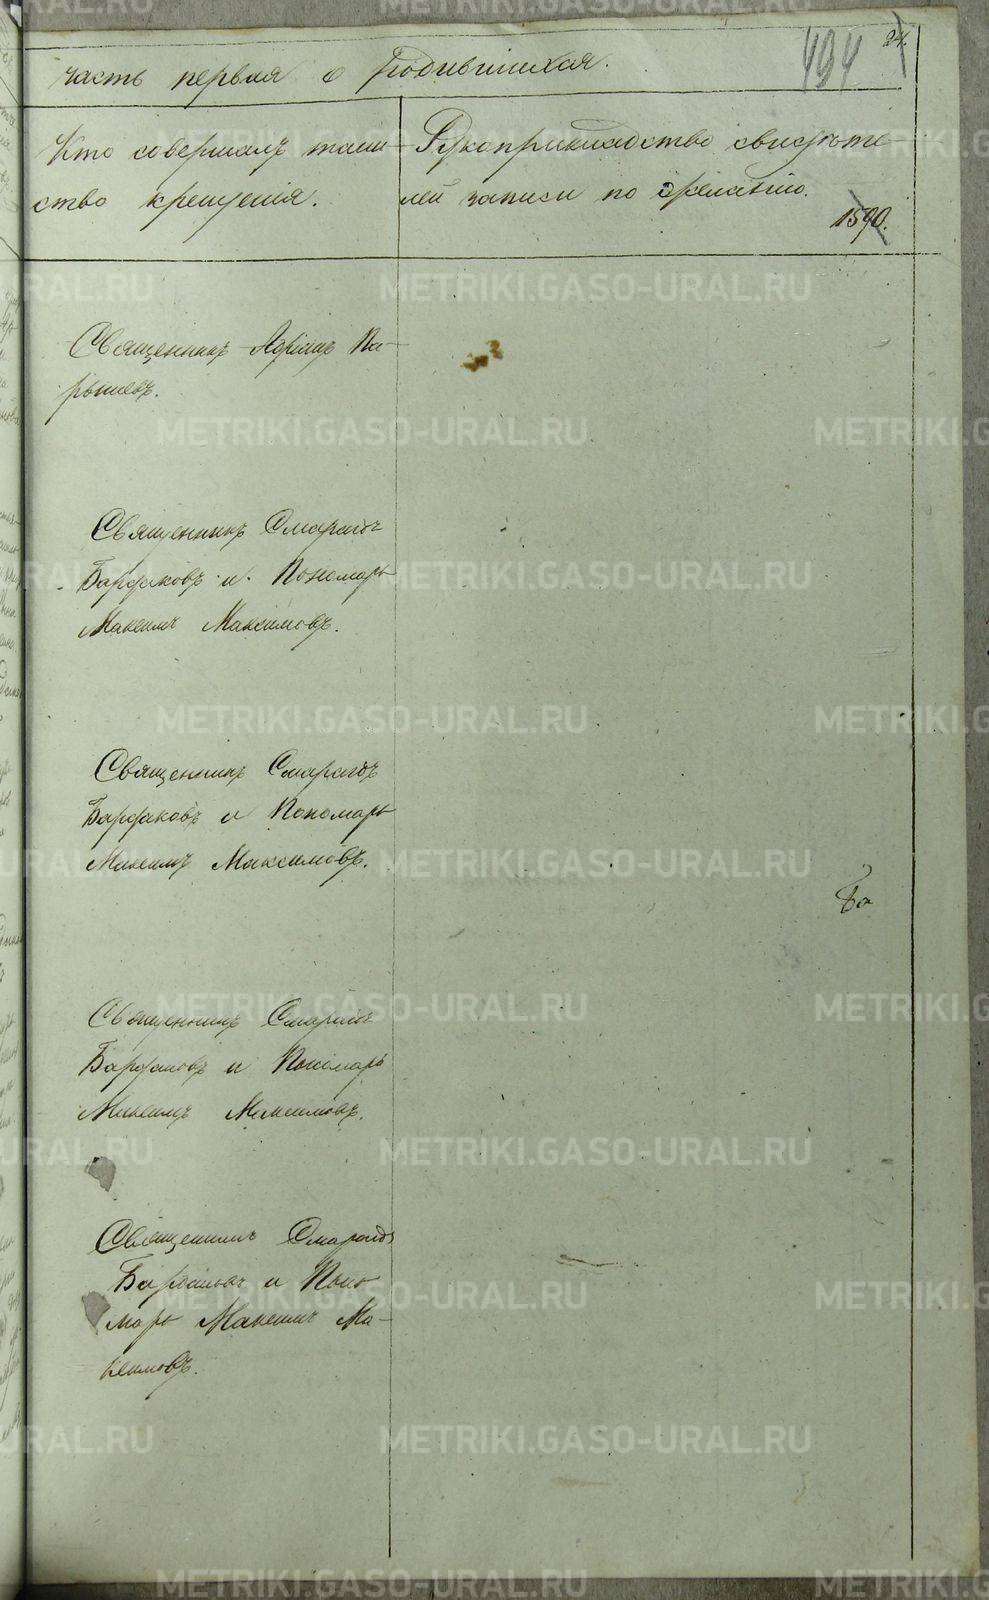 24.
494
часть первая о родившихся.
Кто совершалъ таин-
ство крещенія.
Рукоприкладство свидѣте-
лей записи по желанію.
1590.
Священникъ Адріанъ Па-
рышевъ.
Священникъ Смарагдъ
Барфаковъ и Пономарь
Максимъ Максимовъ.
Священникъ Смарагдъ
Барфаковъ и Пономарь
Максимъ Максимовъ.
Священникъ Смарагдъ
Барфаковъ и Пономарь
Максимъ Максимовъ.
Священникъ Смарагдъ
Барфаковъ и Поно-
марь Максимъ Ма-
ксимовъ.
METRIKI.GASO-URAL.RU